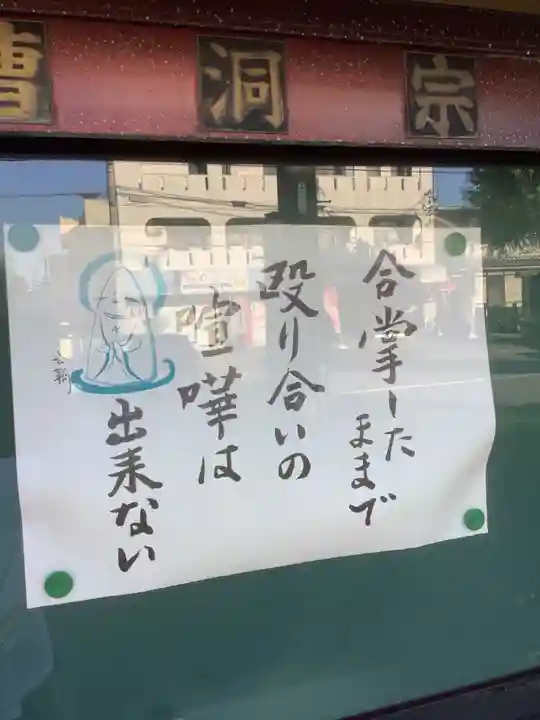 曹洞宗
合掌した
ままで
殴り合いの
喧嘩は
出来ない